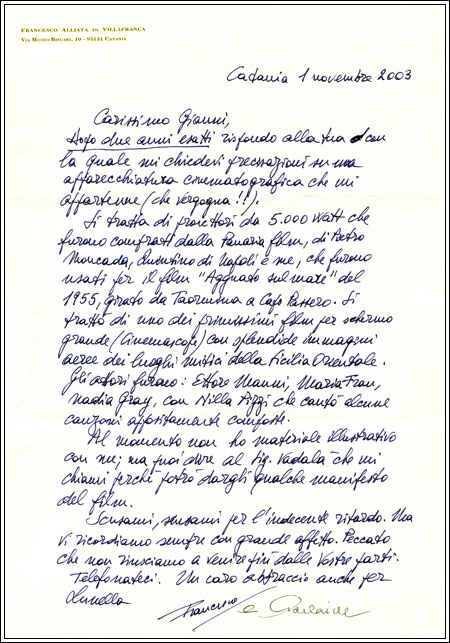 FRANCESCO ALLIATA DI VILLAFRANCA
VIA MUSEO BISCARI, 10 - 95131 CATANIA
Catania 1 novembre 2003
Carissimo Gianni,
dopo due anni esatti rispondo alla tua con
la quale mi chiedevi precisazioni su una
apparecchiatura cinematografica che mi
appartenne (che vergogna!!).
Si tratta di proiettori da 5.000 Watt che
furono comprati dalla Panaria film, di Pietro
Moncada, Quintino di Napoli e me, che furono
usati per il film "Agguato sul mare" del
1955, girato da Taormina a Capo Passero. Si
trattò di uno dei primissimi film per schermo
grande (Cinemascope) con splendide immagini
aeree dei luoghi mitici della Sicilia Orientale.
Gli attori furono: Ettore Manni, Maria Frau,
Nadia Gray, con Nilla Pizzi che cantò alcune
canzoni appositamente composte.
Al momento non ho materiale illustrativo
con me; ma puoi dire al Sig. Vadalà che mi
chiami perchè potrò dargli qualche manifesto
del film.
Scusami, scusami per l'indecente ritardo. Ma
vi ricordiamo sempre con grande affetto. Peccato
che non riusciamo a venire più dalle Vostre parti.
Telefonateci. Un caro abbraccio anche per
Lunella
Francesco e